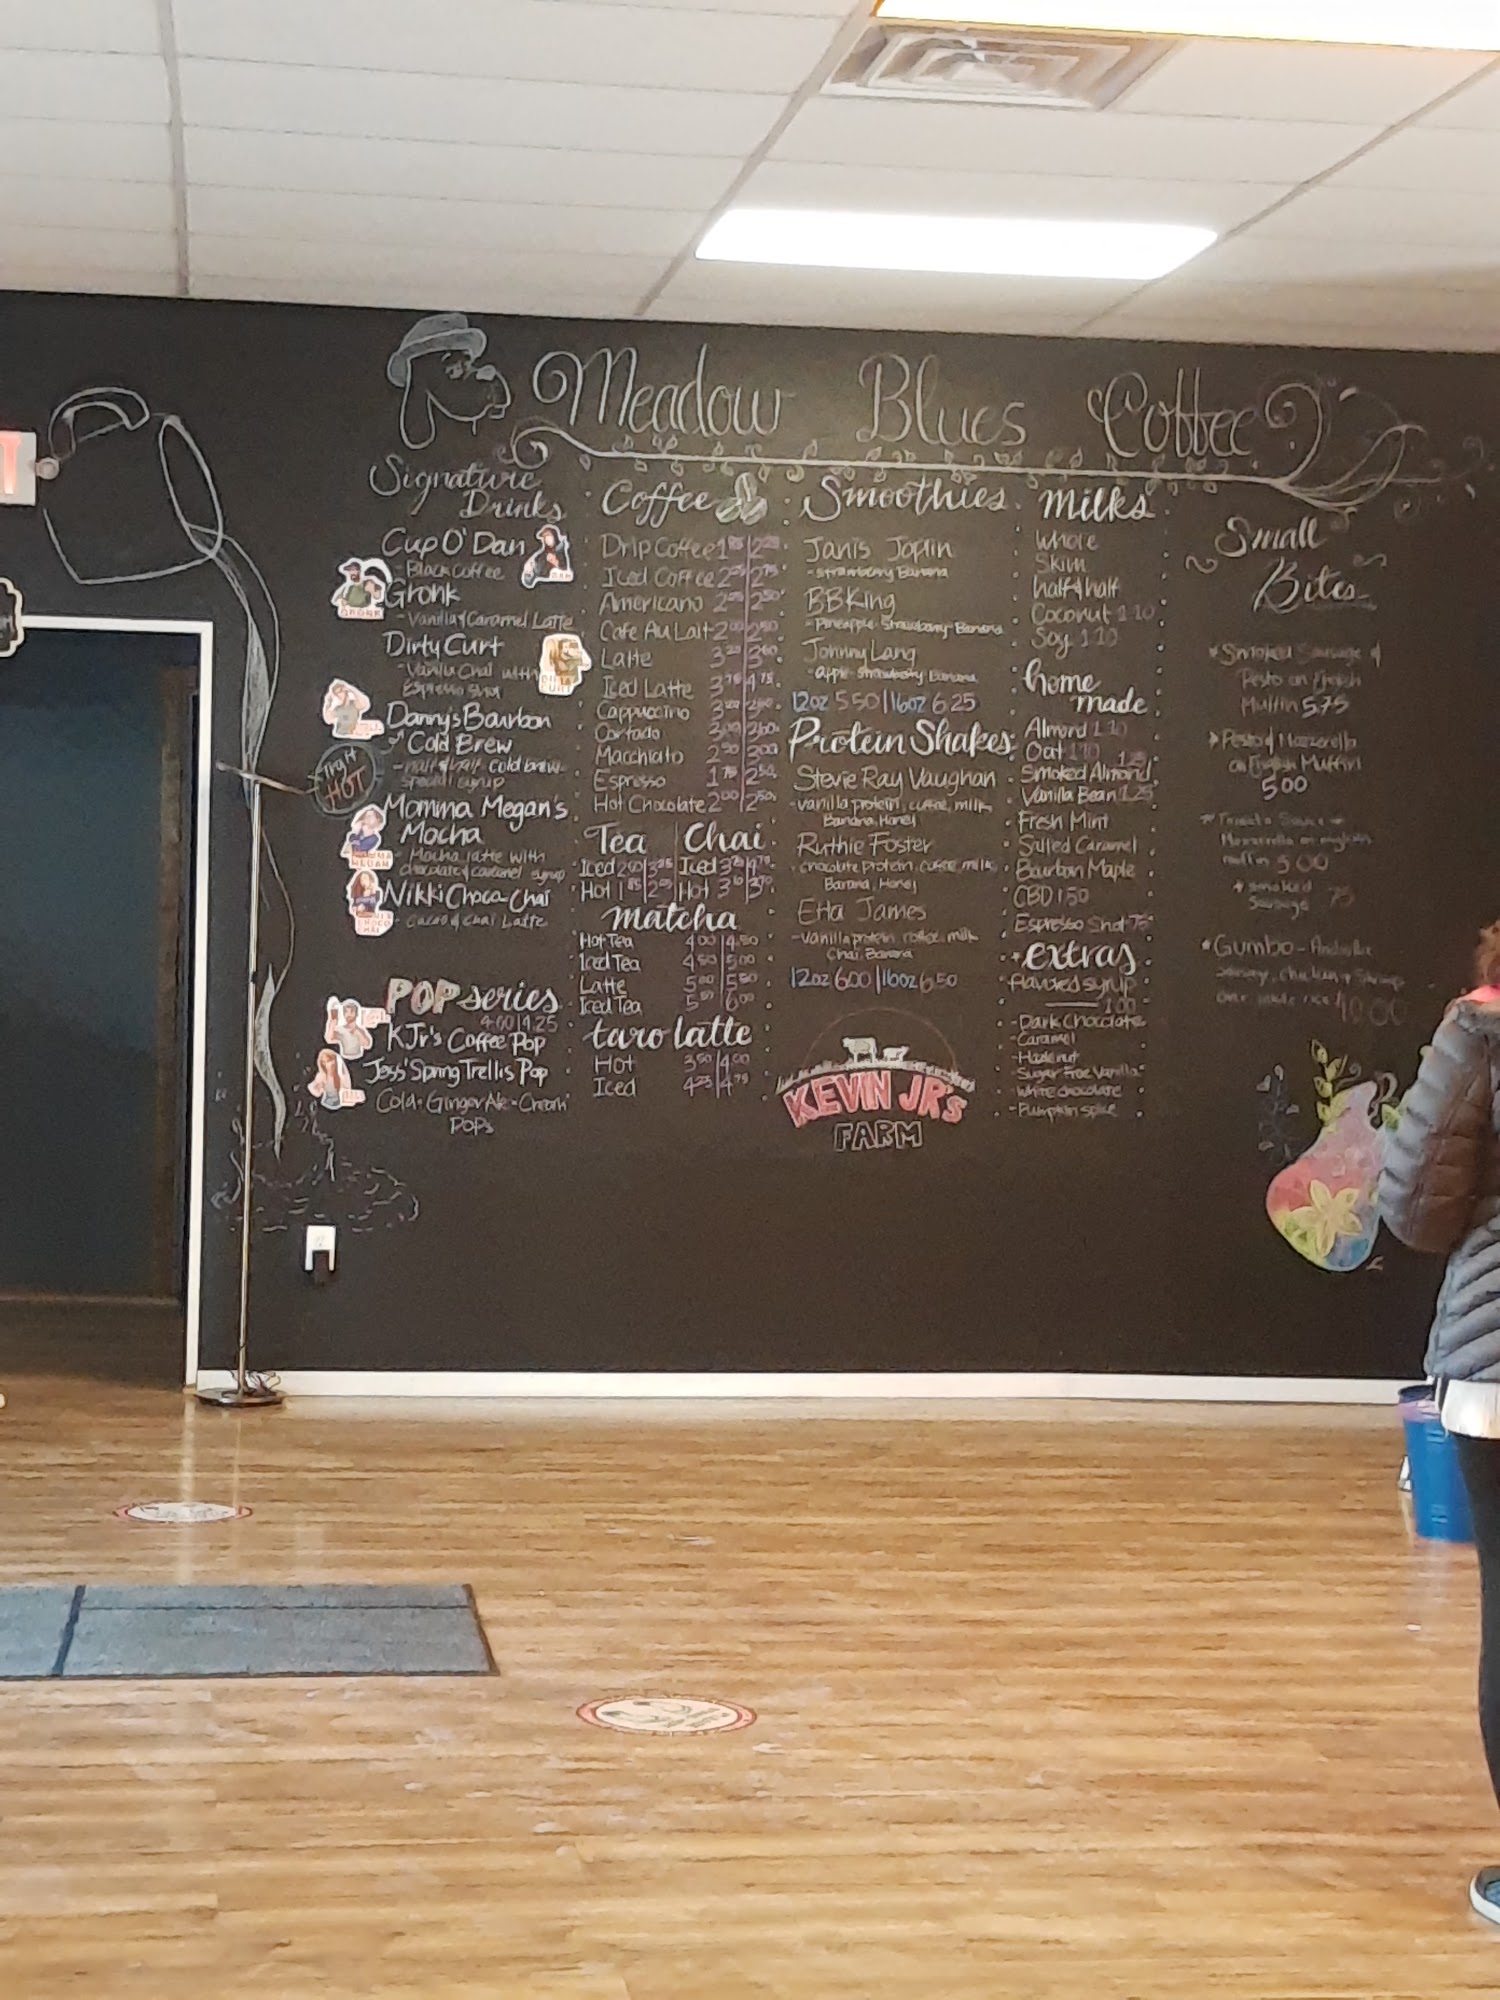 Meadow Blues Coffee
Signature
Drinks
Cup O' Dan
- Black Coffee
Gronk
- Vanilla & Caramel Latte
Dirty Curt
- Vanilla Chai with
Espresso Shot
Danny's Bourbon
Cold Brew
- half & half cold brew
special syrup
HOT
Momma Megan's
Mocha
- Mocha latte with
chocolate & caramel syrup
Nikki Choca-Chai
- Cacao & Chai Latte
POP series
4.00|4.25
KJr's Coffee Pop
Jess' Spring Trellis Pop
Cold-Ginger Ale-Cream
POPs
Coffee
Drip Coffee
Iced Coffee
Americano
Cafe Au Lait
Latte
Iced Latte
Cappuccino
Cortado
Macchiato
Espresso
Hot Chocolate 2.00|2.50
Tea | Chai
Iced Iced
Hot Hot
Matcha
Hot Tea 4.00|4.50
Iced Tea 4.50|5.00
Latte 5.00|5.50
Iced Tea 5.50|6.00
taro latte
Hot 3.50|4.00
Iced 4.25|4.75
Smoothies
Janis Joplin
- Strawberry Banana
BB King
- Pineapple Strawberry Banana
Johnny Lang
- apple strawberry Banana
12oz 5.50|16oz 6.25
Protein Shakes
Stevie Ray Vaughan
- vanilla protein, coffee, milk
Banana, Honey
Ruthie Foster
- chocolate protein, coffee, milk,
Banana, Honey
Etta James
- vanilla protein, coffee, milk
Chai, Banana
12oz 6.00|16oz 6.50
KEVIN JR's
FARM
Milks
Whole
Skim
half & half
Coconut 1.10
Soy 1.10
home
made
Almond 1.10
Oat 1.10
Smoked Almond 1.25
Vanilla Bean 1.25
Fresh Mint
Salted Caramel
Bourbon Maple
CBD 1.50
Espresso Shot 75
extras
flavored syrup
1.00
- Dark Chocolate
- Caramel
- Hazelnut
- Sugar Free Vanilla
- White chocolate
- Pumpkin spice
Small
Bites
* Smoked Sausage &
Pesto on English
Muffin 5.75
* Pesto & Mozzarella
on English Muffin
5.00
* Tomato Sauce
Mozzarella on english
muffin 5.00
* smoked
Sausage 75
* Gumbo - Andouille
Sausage, Chicken & Shrimp
over white rice 10.00